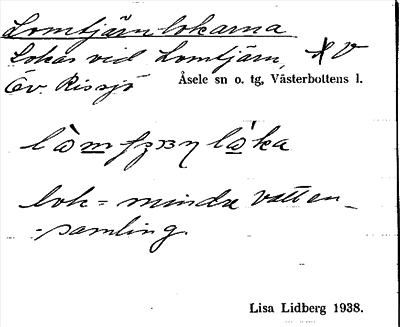 Lomtjärnlokarna
Lokar vid Lomtjärn, V
Öv. Rissjö
Åsele sn o. tg, Västerbottens l.
lok = mindre vatten-
-samling.
Lisa Lidberg 1938.